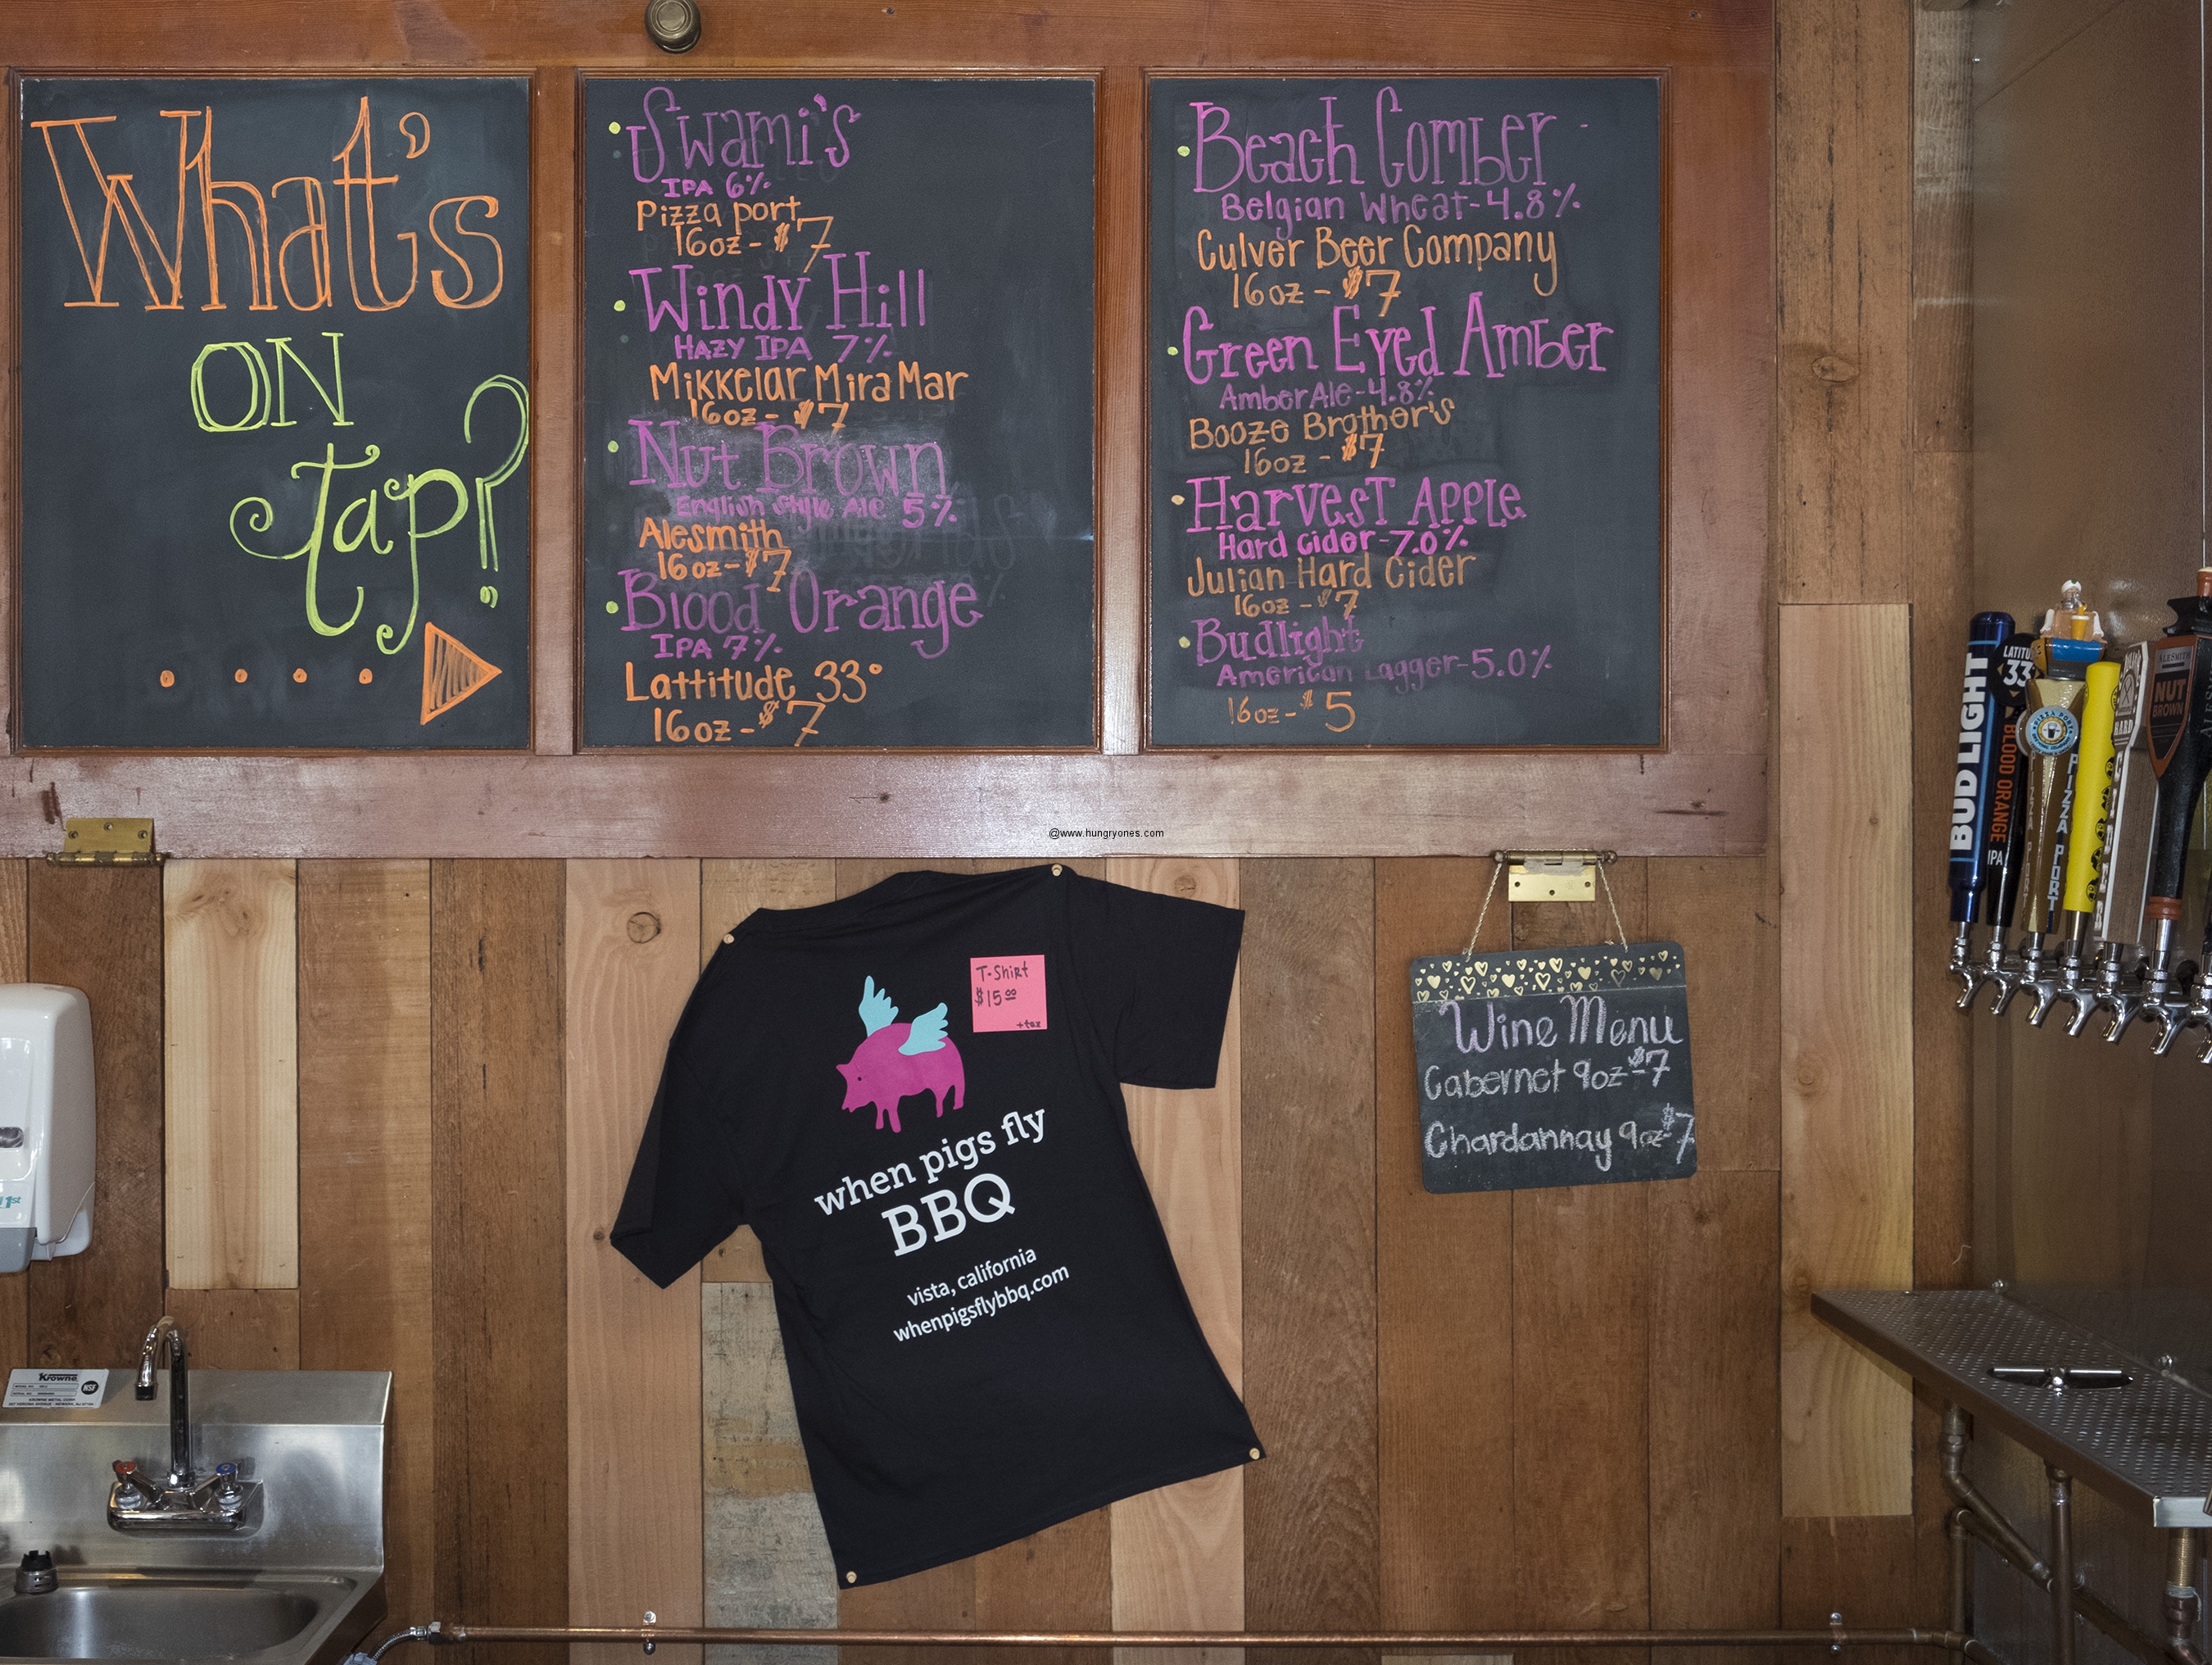 What's
ON
tap?
Swami's
IPA 6%
Pizza port
16oz - $7
Windy Hill
HAZY IPA 7%
Mikkelar Mira Mar
16oz - $7
Nut Brown
English Style Ale 5%
Alesmith
16oz - $7
Blood Orange
IPA 7%
Lattitude 33°
16oz - $7
Beach Comber
Belgian Wheat - 4.8%
Culver Beer Company
16oz - $7
Green Eyed Amber
Amber Ale - 4.8%
Booze Brother's
16oz - $7
Harvest Apple
Hard Cider - 7.0%
Julian Hard Cider
16oz - $7
Budlight
American Lagger - 5.0%
16oz - $5
@www.hungryones.com
T-Shirt
$15.00
+tax
when pigs fly
BBQ
vista, california
whenpigsflybbq.com
Wine Menu
Cabernet 9oz - $7
Chardannay 9oz - $7
BUD LIGHT
LATITU
33
BLOOD ORANGE
IPA
PIZZA PORT
PIZZA PORT
HARD
ALESMITH
NUT
BROWN
Krowne
NSF
1st